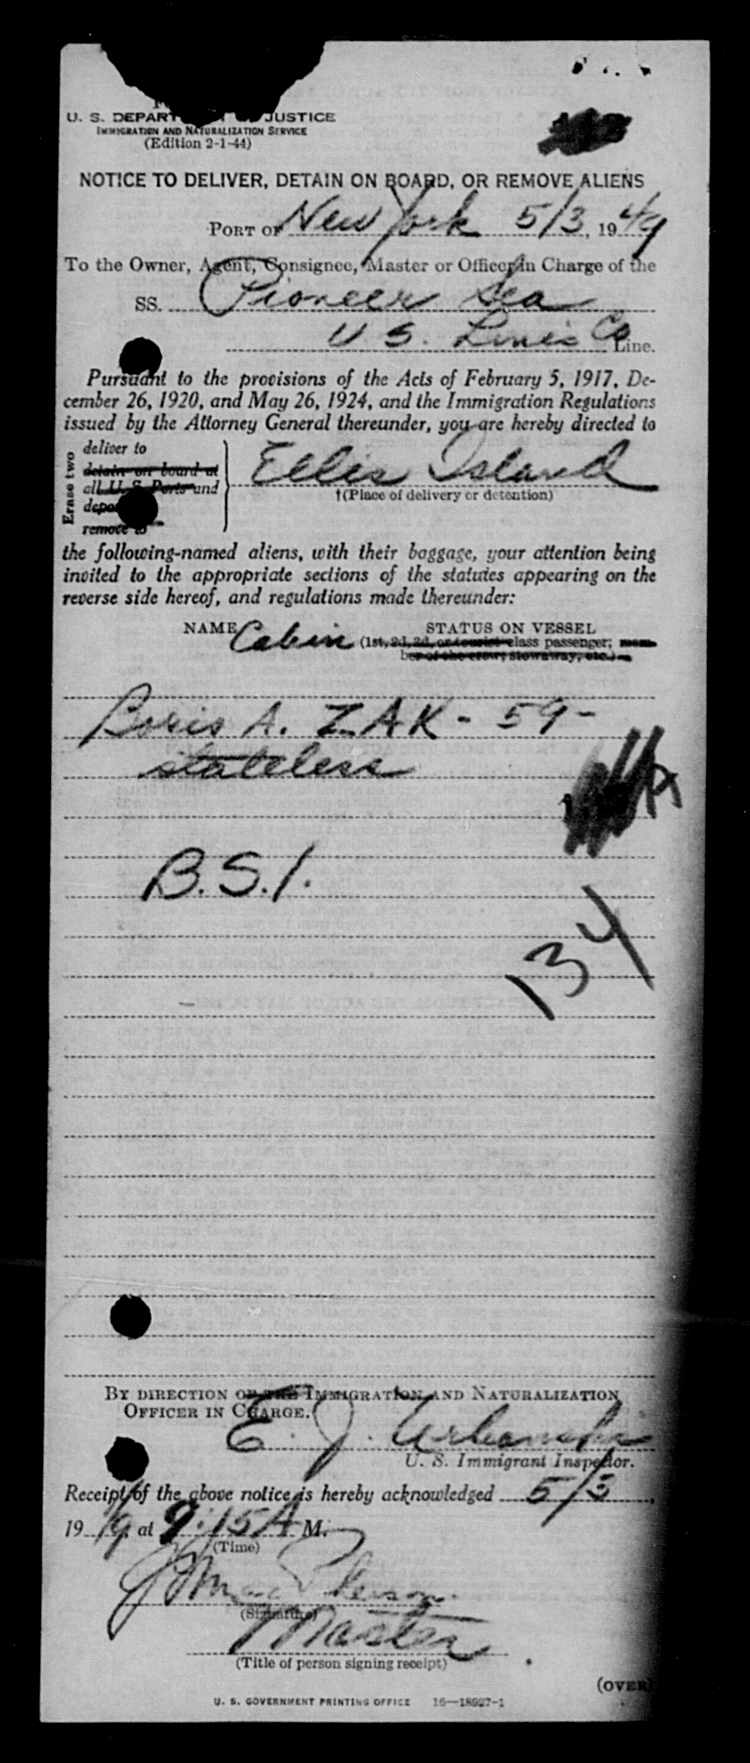 U. S. DEPARTMENT OF JUSTICE
IMMIGRATION AND NATURALIZATION SERVICE
(Edition 2-1-44)
NOTICE TO DELIVER, DETAIN ON BOARD, OR REMOVE ALIENS
PORT OF New York 5/3, 1949
To the Owner, Agent, Consignee, Master or Officer in Charge of the
SS. Pioneer Sea
U S. Lines Co Line.
Pursuant to the provisions of the Acts of February 5, 1917, De-
cember 26, 1920, and May 26, 1924, and the Immigration Regulations
issued by the Attorney General thereunder, you are hereby directed to
Erase two
deliver to
detain on board at
all U. S. Ports and
remove to
Ellis Island
†(Place of delivery or detention)
the following-named aliens, with their baggage, your attention being
invited to the appropriate sections of the statutes appearing on the
reverse side hereof, and regulations made thereunder:
NAME Cabin STATUS ON VESSEL
(1st, 2d, 3d, or tourist class passenger; mem-
ber of the crew; stowaway, etc.)
Boris A. ZAK - 59 -
stateless
B.S.I.
134
BY DIRECTION OF THE IMMIGRATION AND NATURALIZATION
OFFICER IN CHARGE.
E. J. Urbanski
U. S. Immigrant Inspector.
Receipt of the above notice is hereby acknowledged 5/3,
19 49 at 9:15 A M.
(Time)
(Signature)
Master
(Title of person signing receipt)
(OVER)
U. S. GOVERNMENT PRINTING OFFICE 16—18927-1